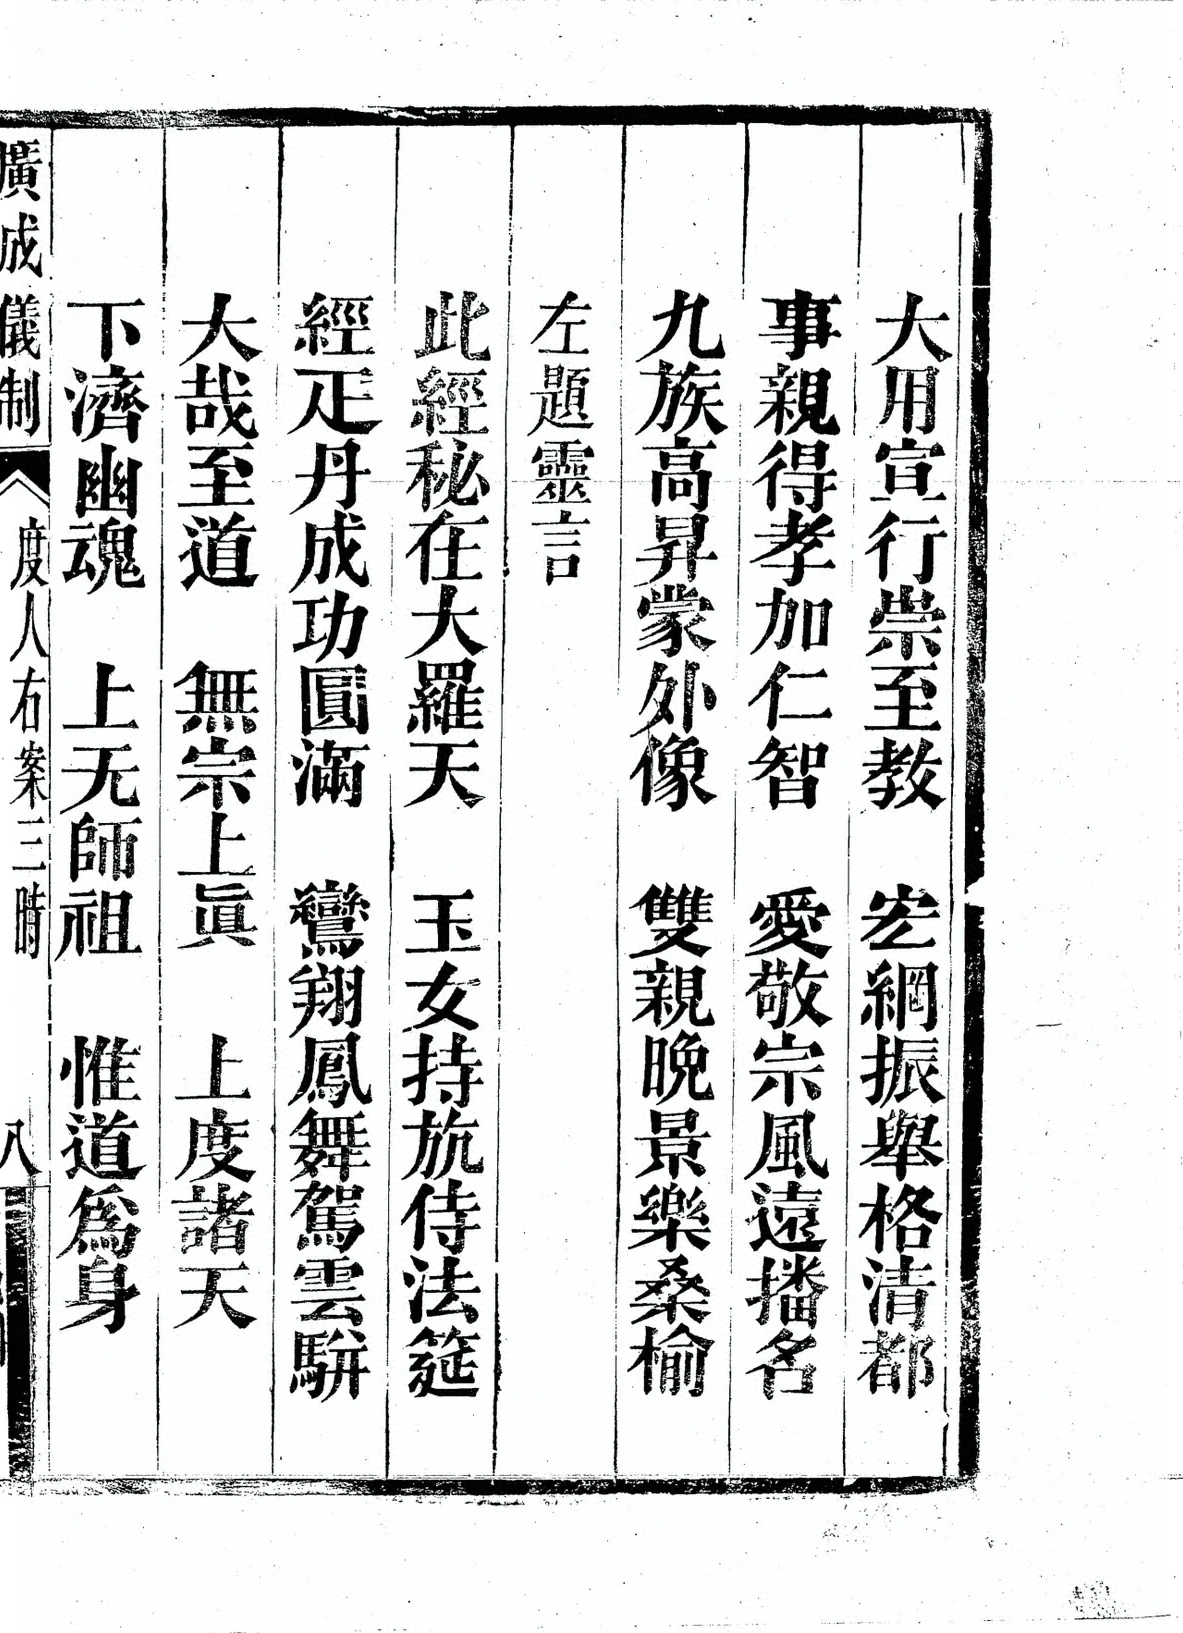 大用宣行崇至教　宏綱振舉格清都
事親得孝加仁智　愛敬宗風遠播名
九族高昇蒙外像　雙親晚景樂桑榆
左題靈言
此經秘在大羅天　玉女持旂侍法筵
經疋丹成功圓滿　鸞翔鳳舞駕雲駢
大哉至道　無宗上眞　上度諸天
下濟幽魂　上无師祖　惟道爲身
廣成儀制　度人右案三時　八